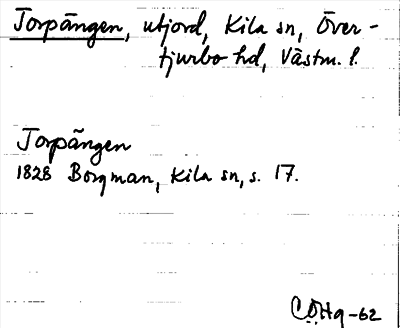 Torpängen, utjord, Kila sn, Över-
tjurbo hd, Västm. l.
Torpängen
1828 Borgman, Kila sn, s. 17.
C.O.Hg -62